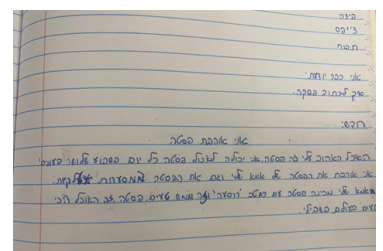 פיצה
צ'יפס
תפוח
אני כבר יודעת:
איך לכתוב פסקה.
חדש:
אני אוהבת פסטה
האוכל האהוב עלי זה פסטה. אני יכולה לאכול פסטה כל יום בשבוע שלוש פעמים
אני אוהבת את הפסטה של אמא שלי וגם את הפסטה מהמסעדות
אמא שלי מכינה פסטה עם רוטב טעים. פסטה זה האוכל הכי
טעים בעולם בשבילי.